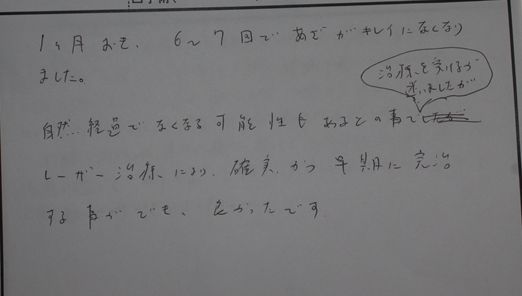 1ヶ月おき、6〜7回であざがキレイになくなり
ました。
治療を受けるか
迷いましたが
自然経過でなくなる可能性もあるとの事で
レーザー治療により、確実かつ早期に完治
する事ができ、良かったです